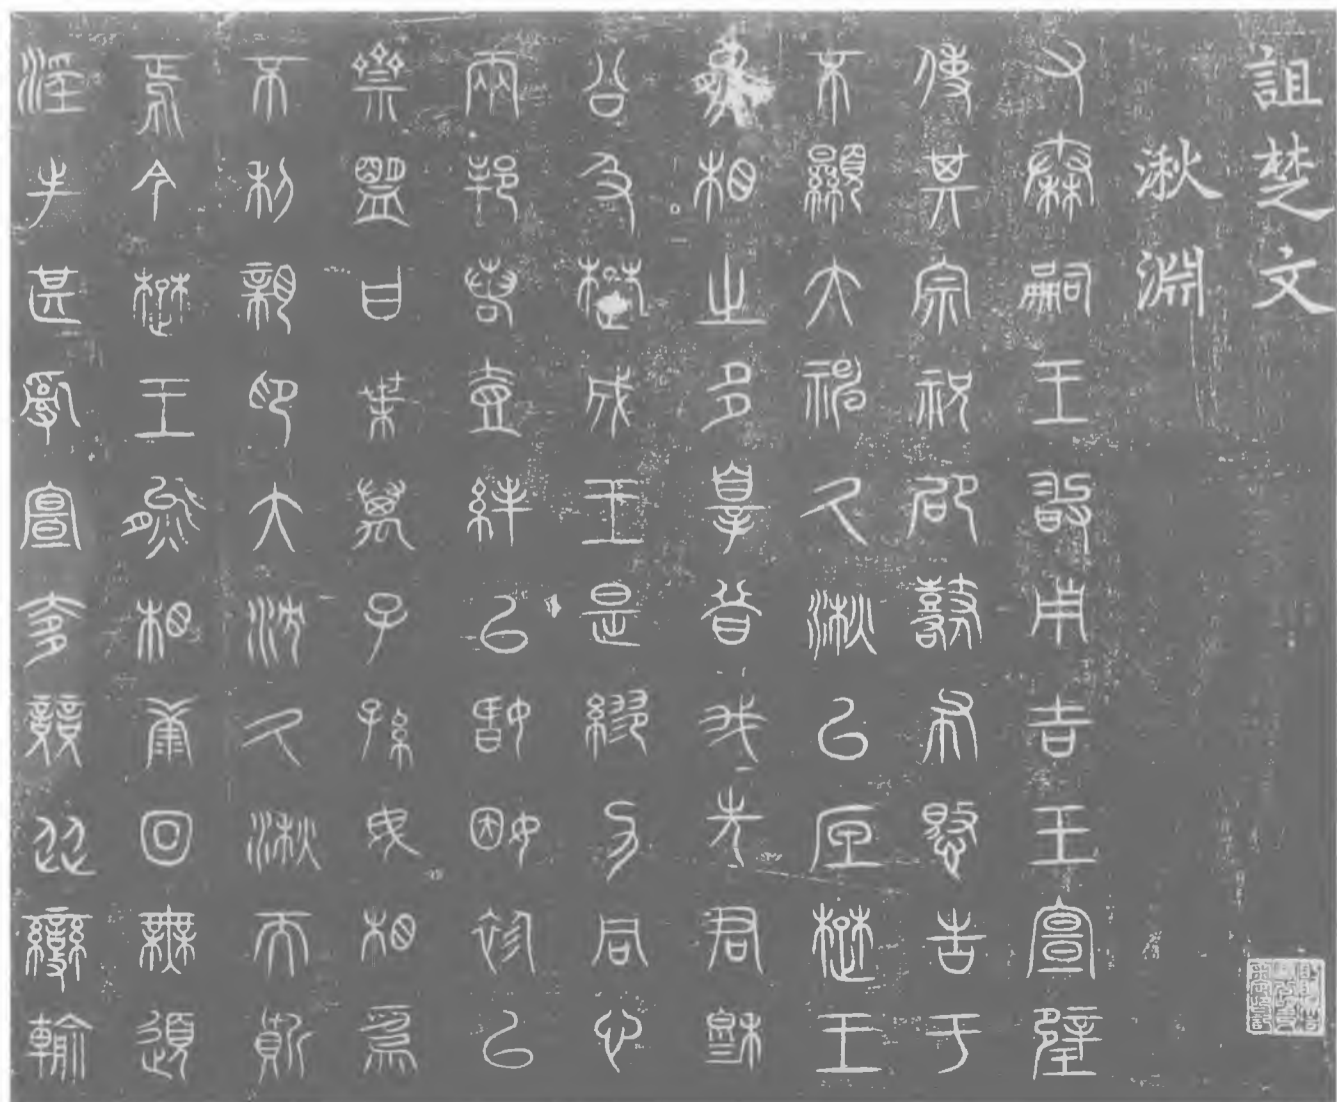 詛楚文
湫淵
又秦嗣王敢用吉玉宣璧
使其宗祝邵鼛布憝告于
不顯大神久湫以底楚王
熊相之多辠昔我先君穆
公及楚成王是繆力同心
兩邦若壹絆以婚姻袗以
齋盟曰枼萬子孫毋相為
不利親卬大沈久湫而質
焉今楚王熊相康回無道
淫失甚亂宣奓競從變輸